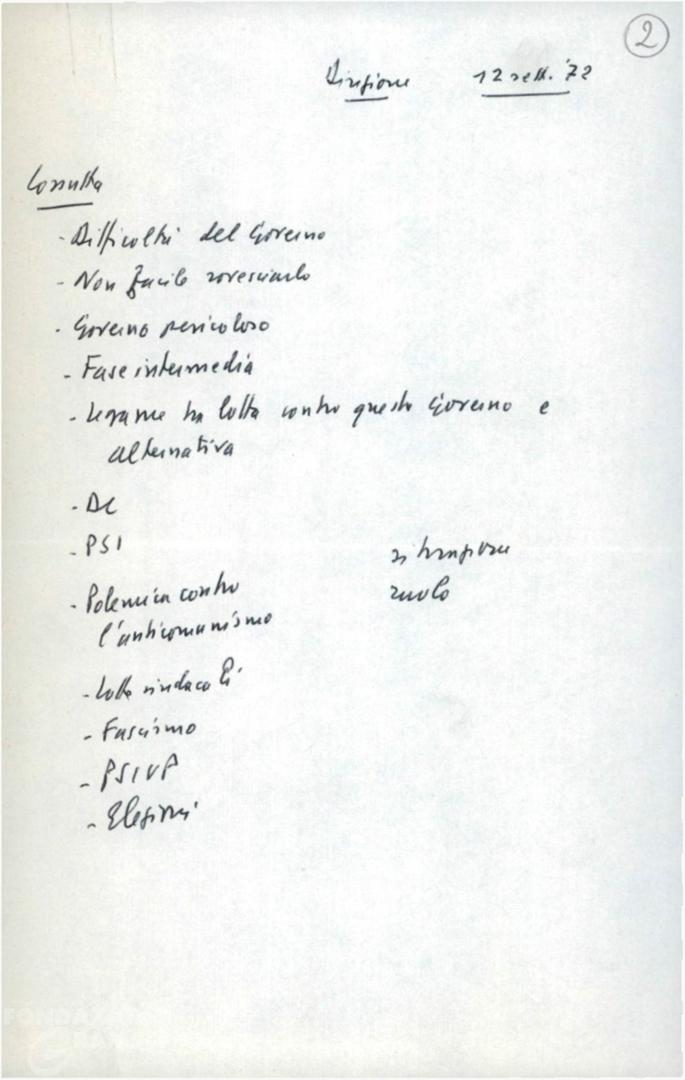 2
Direzione 12 sett. '72
Cossutta
- Difficoltà del Governo
- Non facile rovesciarlo
- Governo pericoloso
- Fase intermedia
- Legame tra lotta contro questo Governo e
alternativa
- DC
- PSI situazione
ruolo
- Polemica contro
l'anticomunismo
- Lotte sindacali
- Fascismo
- PSIUP
- Elezioni